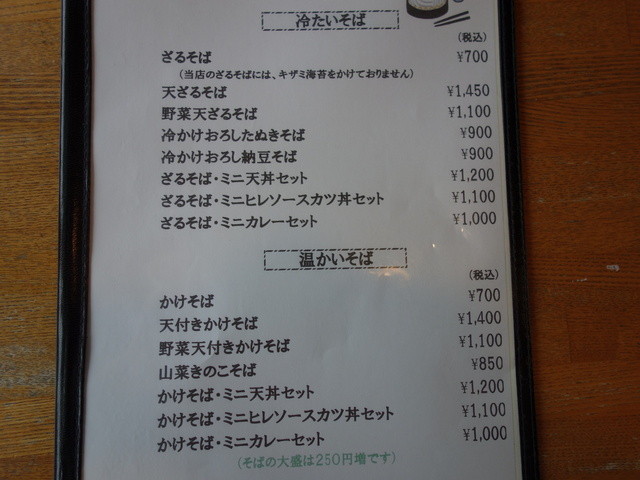 冷たいそば
(税込)
ざるそば ¥700
(当店のざるそばには、キザミ海苔をかけておりません)
天ざるそば ¥1,450
野菜天ざるそば ¥1,100
冷かけおろしたぬきそば ¥900
冷かけおろし納豆そば ¥900
ざるそば・ミニ天丼セット ¥1,200
ざるそば・ミニヒレソースカツ丼セット ¥1,100
ざるそば・ミニカレーセット ¥1,000
温かいそば
(税込)
かけそば ¥700
天付きかけそば ¥1,400
野菜天付きかけそば ¥1,100
山菜きのこそば ¥850
かけそば・ミニ天丼セット ¥1,200
かけそば・ミニヒレソースカツ丼セット ¥1,100
かけそば・ミニカレーセット ¥1,000
(そばの大盛は250円増です)